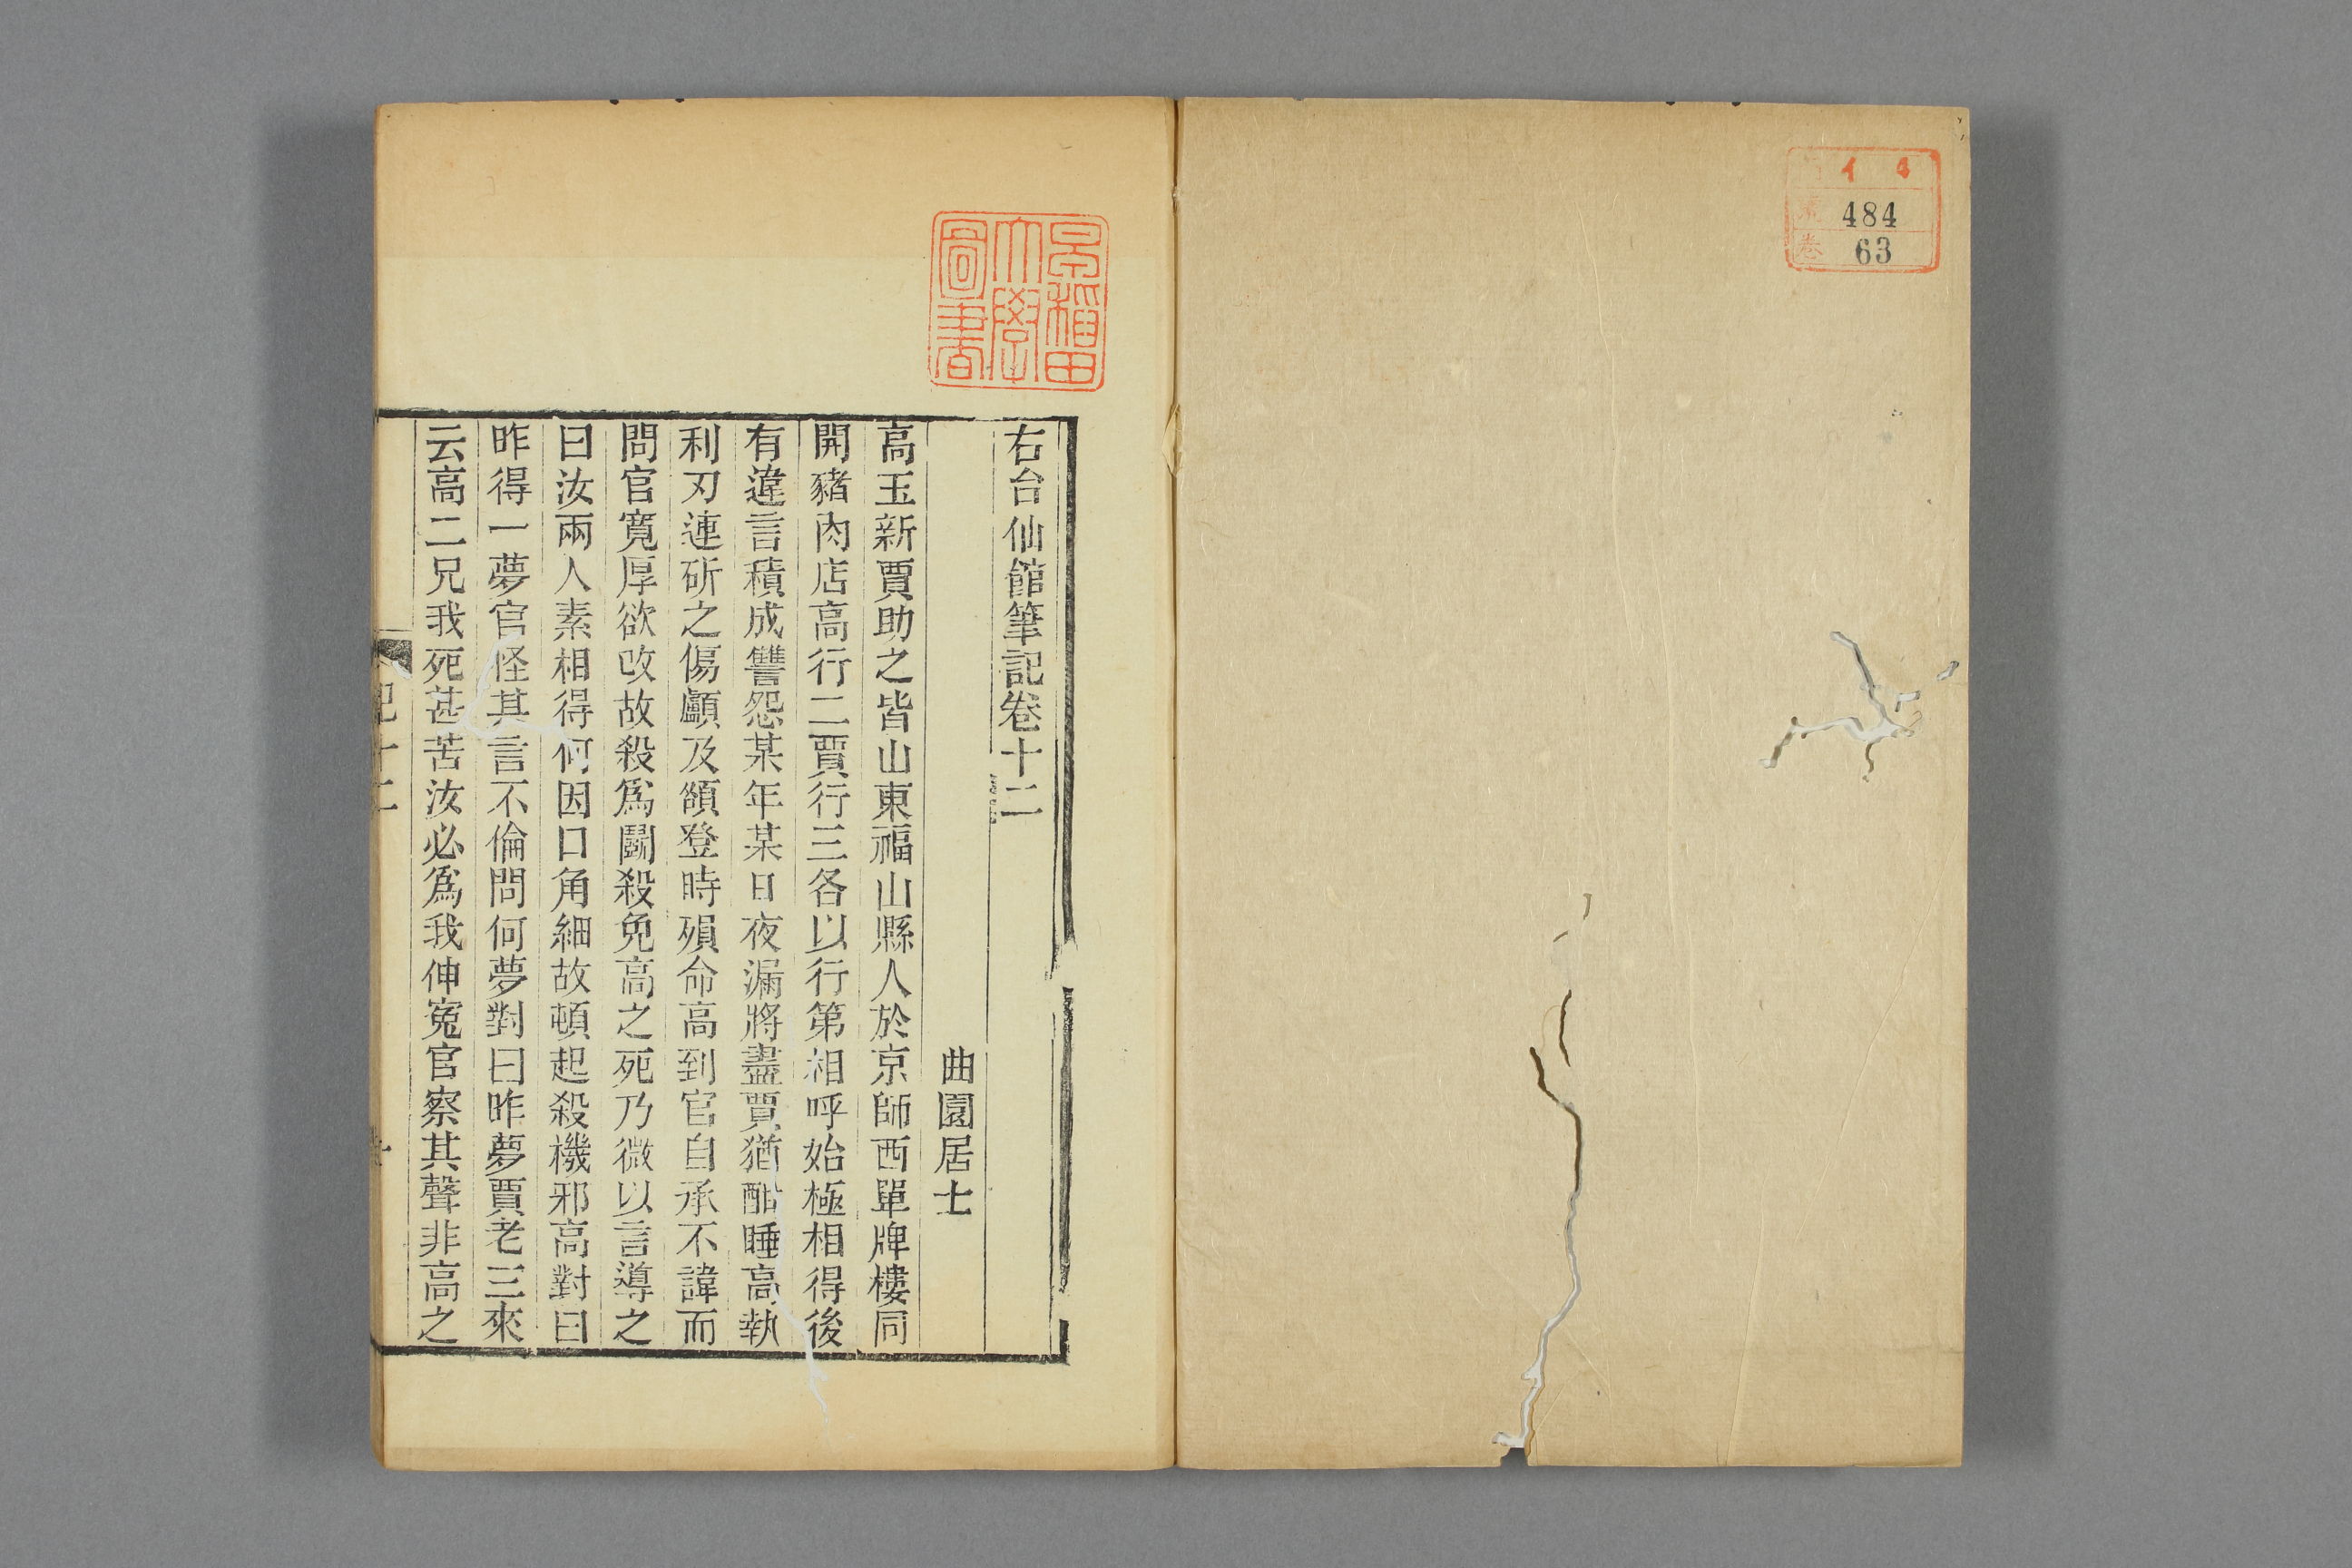 イ 4
484
卷 63
早稲田
大學
圖書
右台仙館筆記卷十二
曲園居士
高玉新賈助之皆山東福山縣人於京師西單牌樓同
開豬肉店高行二賈行三各以行第相呼始極相得後
有違言積成讐怨某年某日夜漏將盡賈猶酣睡高執
利刃連斫之傷顱及頷登時殞命高到官自承不諱而
問官寬厚欲改故殺爲鬭殺免高之死乃微以言導之
曰汝兩人素相得何因口角細故頓起殺機邪高對曰
昨得一夢官怪其言不倫問何夢對曰昨夢賈老三來
云高二兄我死甚苦汝必爲我伸寃官察其聲非高之
記十二